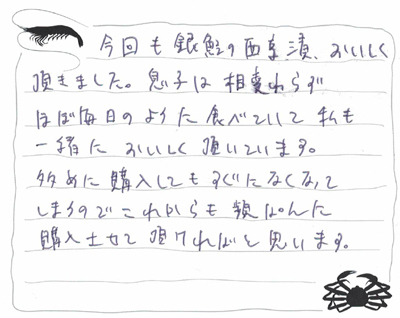 今回も銀鮭の西京漬、おいしく
頂きました。息子は相変わらず
ほぼ毎日のように食べていて私も
一緒においしく頂いています。
多めに購入してもすぐになくなって
しまうのでこれからも頻ぱんに
購入させて頂ければと思います。